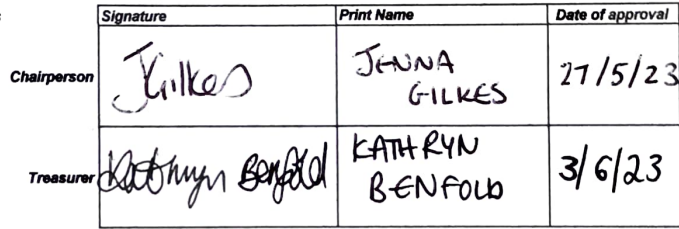 Signature Print Name Date of approval
Chairperson JGilkes JENNA 27/5/23
GILKES
Treasurer Kathryn Benfold KATHRYN 3/6/23
BENFOLD